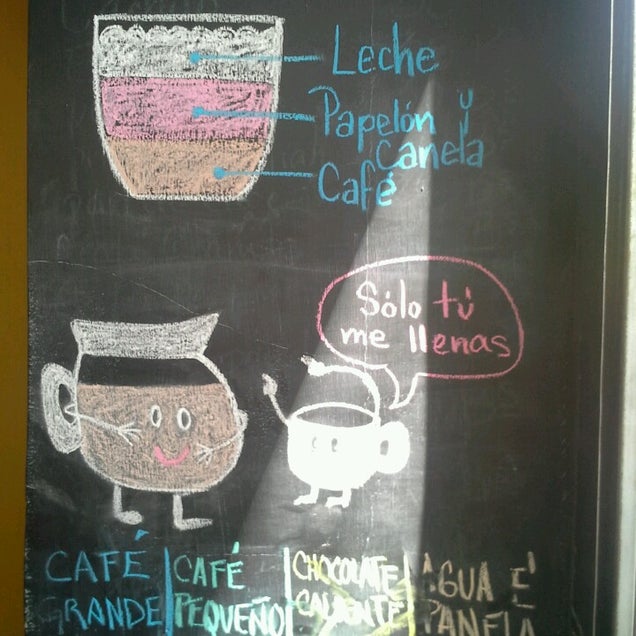 Leche
Papelón y
canela
Café
Sólo tú
me llenas
CAFÉ GRANDE
CAFÉ PEQUEÑO
CHOCOLATE CALIENTE
AGUA E' PANELA